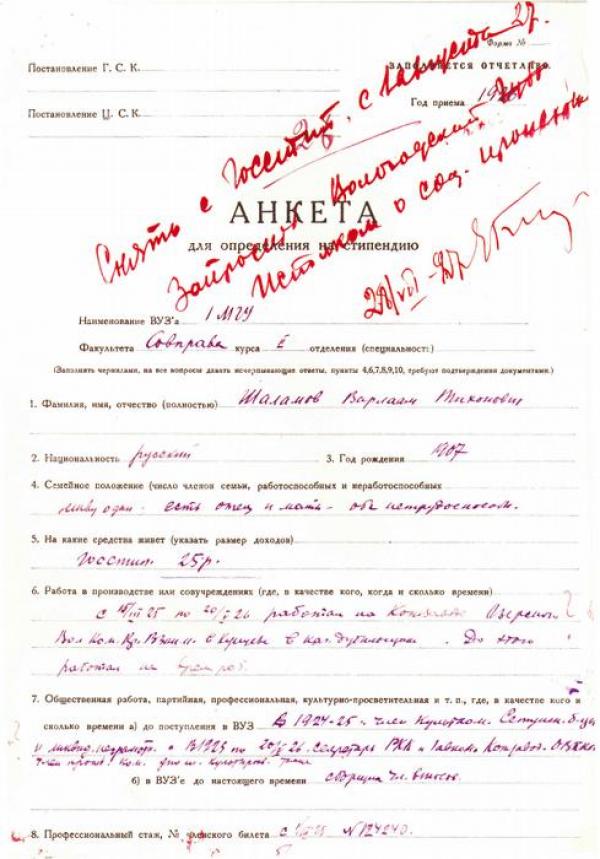 Форма №
Постановление Г. С. К.
ЗАПОЛНЯЕТСЯ ОТЧЕТЛИВО
Год приема 1926
Постановление Ц. С. К.
Снять с Госстип. с 1 августа 27.
Запросить Вологодский
Исполком о соц. происхожд
28/VII-27
АНКЕТА
для определения на стипендию
Наименование ВУЗ'а 1 МГУ
Факультета Совправа курса I отделения (специальность)
(Заполнять чернилами, на все вопросы давать исчерпывающие ответы, пункты 4,6,7,8,9,10, требуют подтверждения документами.)
1. Фамилия, имя, отчество (полностью) Шаламов Варлаам Тихонович
2. Национальность русский 3. Год рождения 1907
4. Семейное положение (число членов семьи, работоспособных и неработоспособных
живу один - есть отец и мать - оба нетрудоспособн.
5. На какие средства живет (указать размер доходов)
Госстип. 25 р.
6. Работа в производстве или совучреждениях (где, в качестве кого, когда и сколько времени)
по 20/I 26 работал на Кожзаводе Озерской
в Кунцеве в кач. дубильщика. До этого
работал
7. Общественная работа, партийная, профессиональная, культурно-просветительная и т. п., где, в качестве кого и
сколько времени а) до поступления в ВУЗ В 1924-25 - член Культком.
и ликвид. неграмотн. В 1925 по 26. Секретарь РКК и
б) в ВУЗ'е до настоящего времени сборщик чл. взносов.
8. Профессиональный стаж, № членского билета с 25 N 124240.